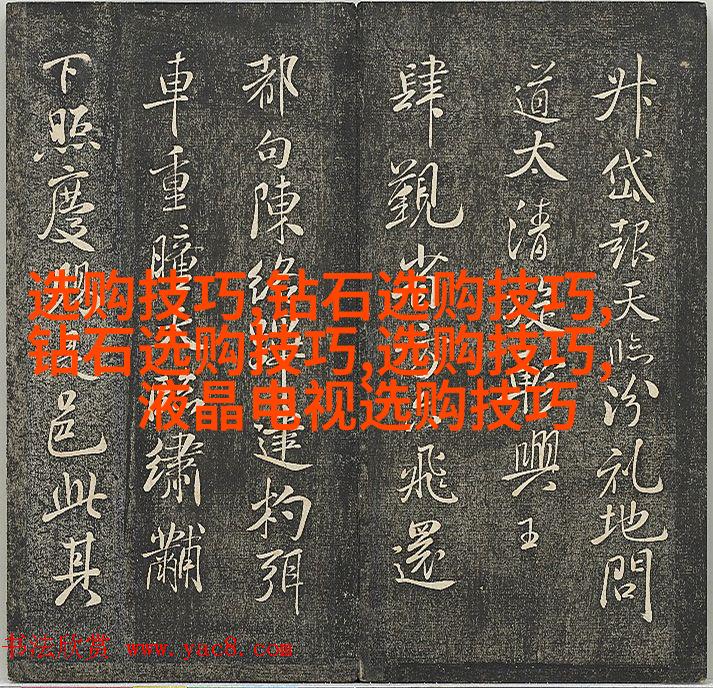 升岱報天臨汾礼地問
道太清興王
肆覲飛還
都句陳絡杓弭
車重瞳繡黼
下照慶邑此其
选购技巧,钻石选购技巧,
钻石选购技巧,选购技巧,
液晶电视选购技巧
书法欣赏 www.yac8.com